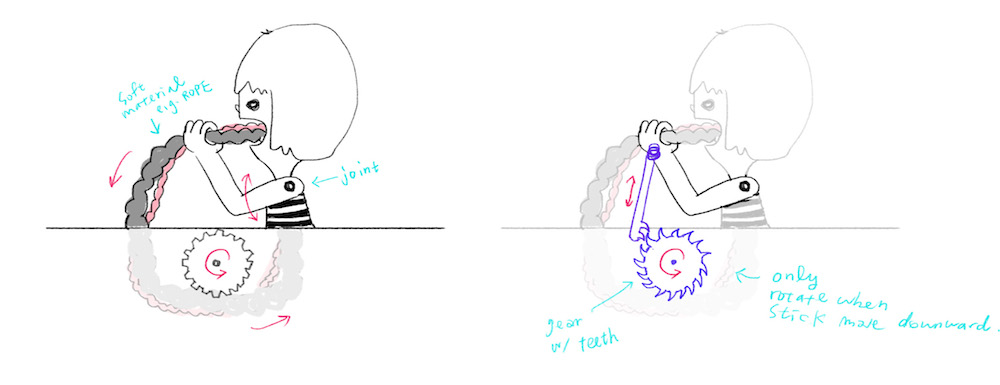 soft
material
e.g. ROPE
joint
gear
w/ teeth
only
rotate when
stick move downward.